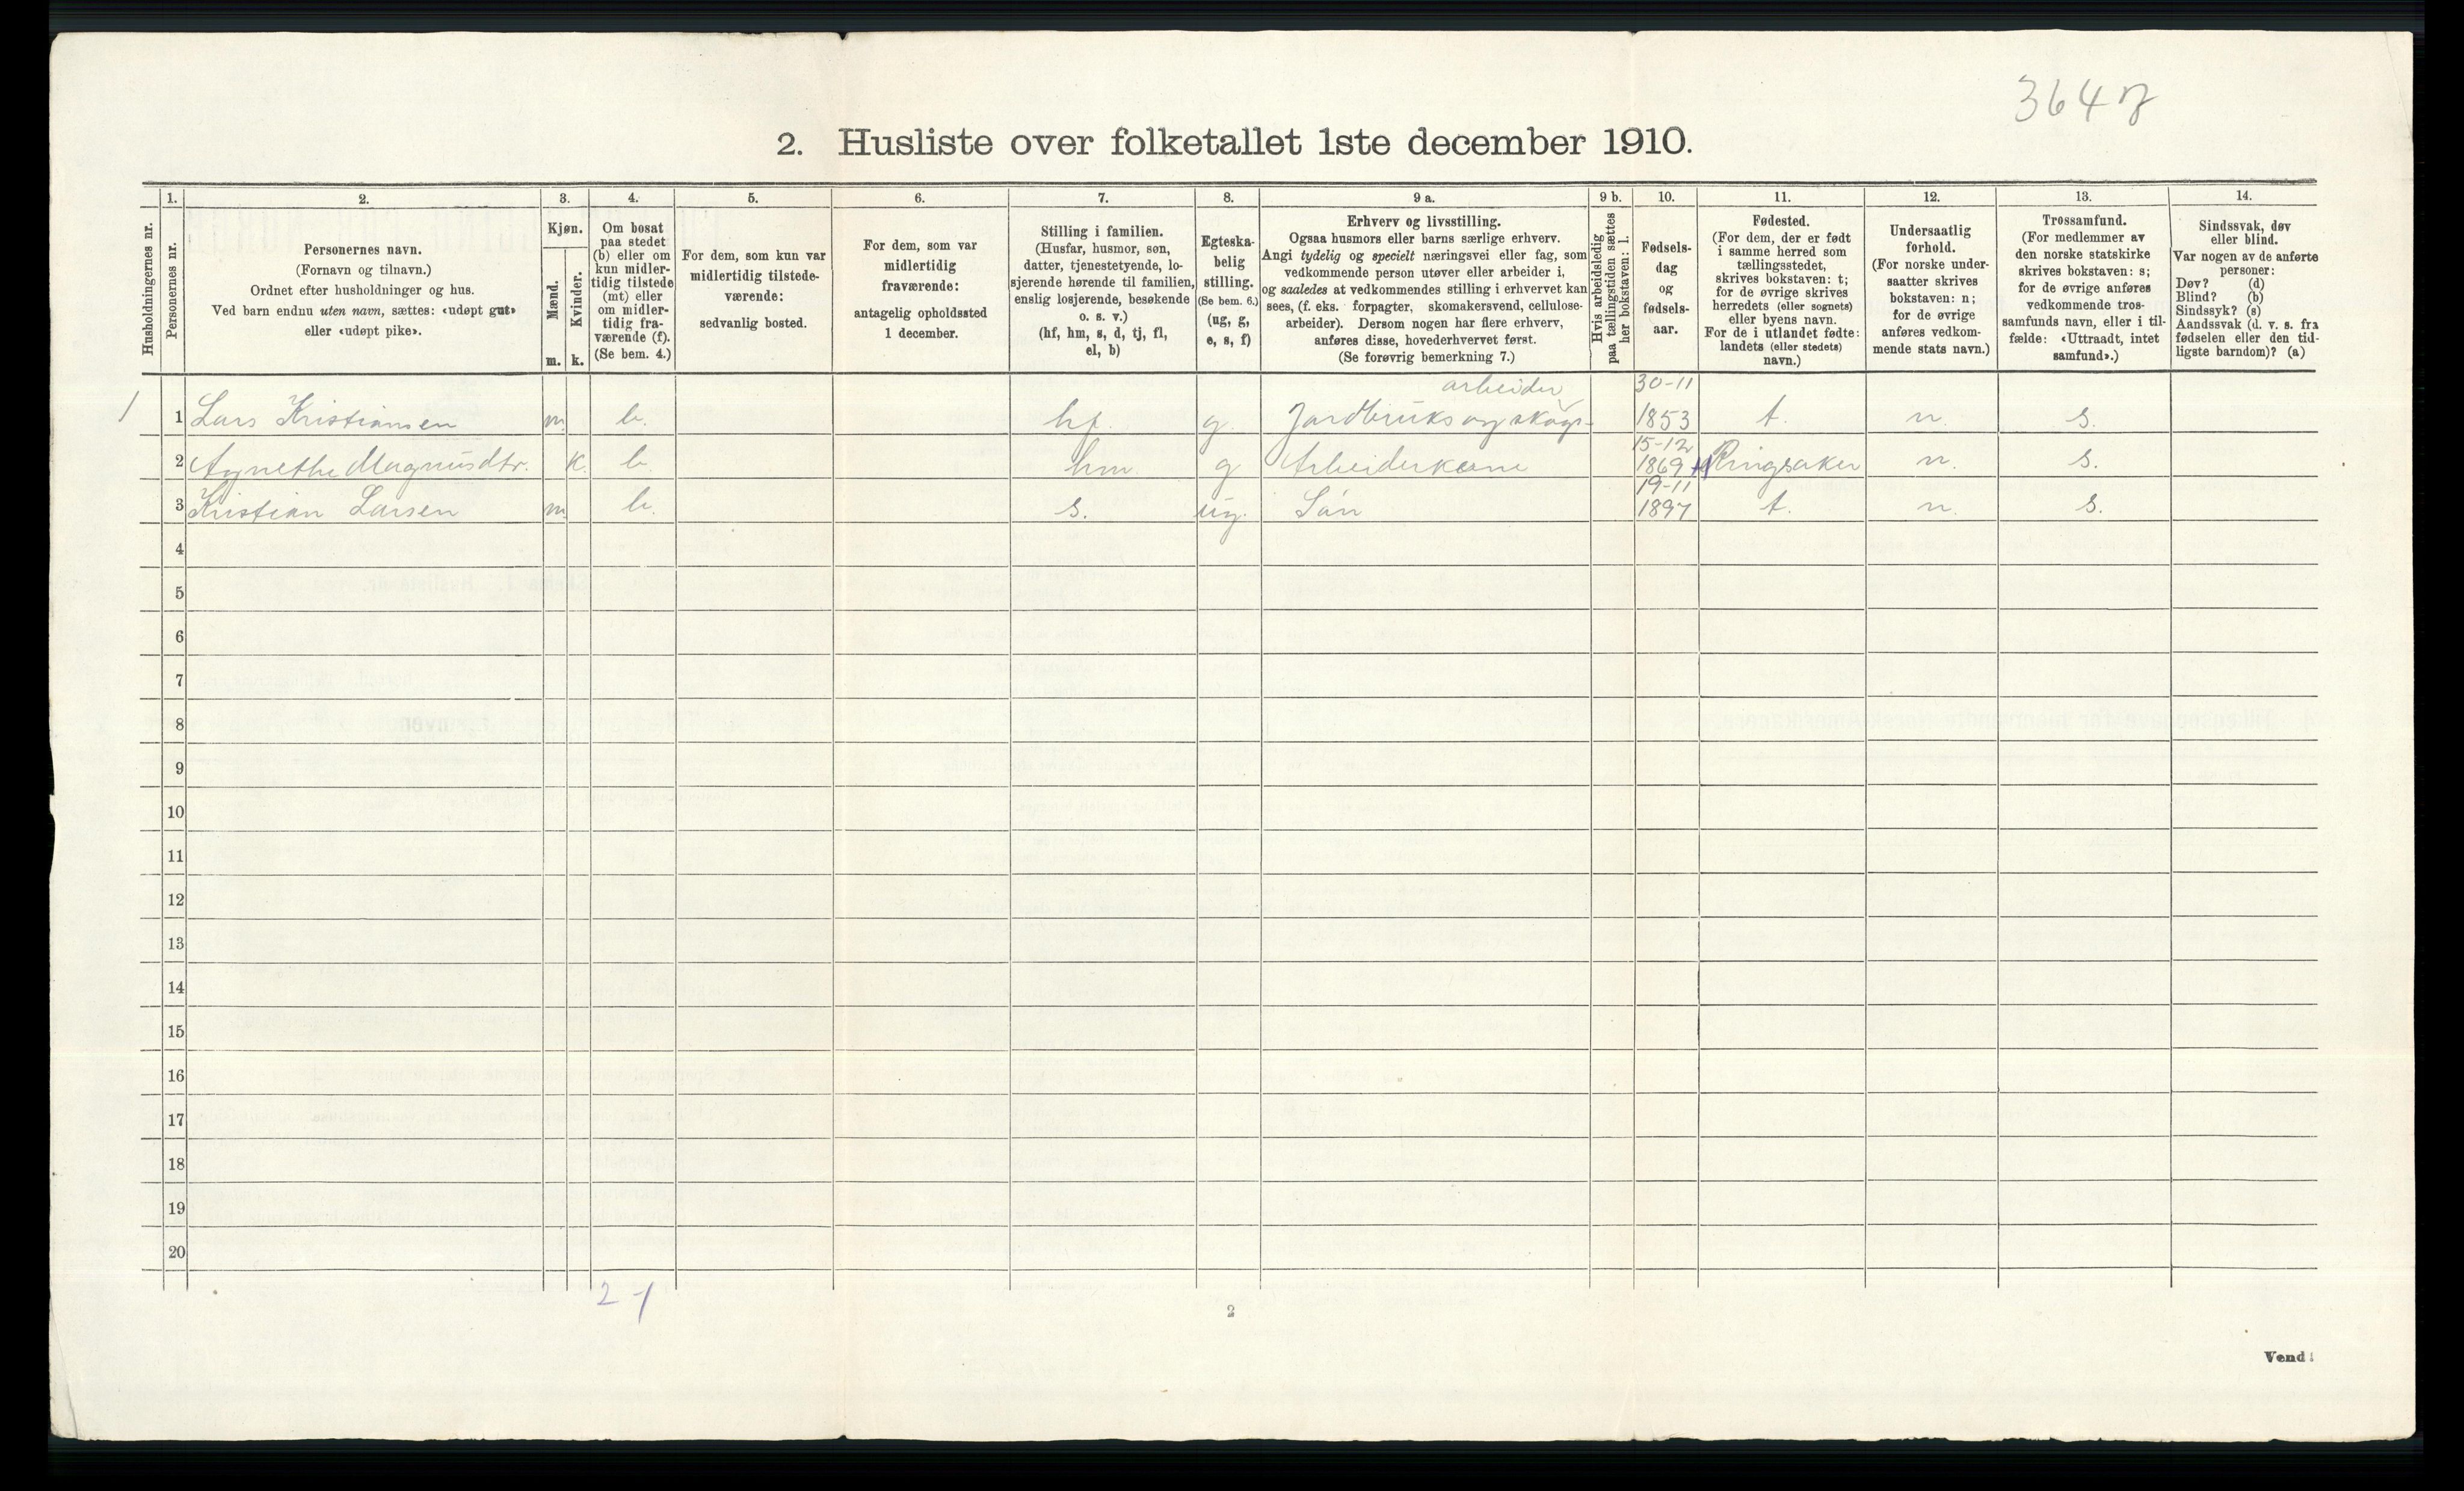 2. Husliste over folketallet 1ste december 1910.
Husholdningernes nr.
1.
Personernes nr.
2.
Personernes navn.
(Fornavn og tilnavn.)
Ordnet efter husholdninger og hus.
Ved barn endnu uten navn, sættes: «udøpt gut»
eller «udøpt pike».
3.
Kjøn.
Mænd.
m.
Kvinder.
k.
4.
Om bosat
paa stedet
(b) eller om
kun midler-
tidig tilstede
(mt) eller
om midler-
tidig fra-
værende (f).
(Se bem. 4.)
5.
For dem, som kun var
midlertidig tilstede-
værende:
sedvanlig bosted.
6.
For dem, som var
midlertidig
fraværende:
antagelig opholdssted
1 december.
7.
Stilling i familien.
(Husfar, husmor, søn,
datter, tjenestetyende, lo-
sjerende hørende til familien,
enslig losjerende, besøkende
o. s. v.)
(hf, hm, s, d, tj, fl,
el, b)
8.
Egteska-
belig
stilling.
(Se bem. 6.)
(ug, g,
e, s, f)
9 a.
Erhverv og livsstilling.
Ogsaa husmors eller barns særlige erhverv.
Angi tydelig og specielt næringsvei eller fag, som
vedkommende person utøver eller arbeider i,
og saaledes at vedkommendes stilling i erhvervet kan
sees, (f. eks. forpagter, skomakersvend, cellulose-
arbeider). Dersom nogen har flere erhverv,
anføres disse, hovederhvervet først.
(Se forøvrig bemerkning 7.)
9 b.
Hvis arbeidsledig
paa tællingstiden sættes
her bokstaven: l.
10.
Fødsels-
dag
og
fødsels-
aar.
11.
Fødested.
(For dem, der er født
i samme herred som
tællingsstedet,
skrives bokstaven: t;
for de øvrige skrives
herredets (eller sognets)
eller byens navn.
For de i utlandet fødte:
landets (eller stedets)
navn.)
12.
Undersaatlig
forhold.
(For norske under-
saatter skrives
bokstaven: n;
for de øvrige
anføres vedkom-
mende stats navn.)
13.
Trossamfund.
(For medlemmer av
den norske statskirke
skrives bokstaven: s;
for de øvrige anføres
vedkommende tros-
samfunds navn, eller i til-
fælde: «Uttraadt, intet
samfund».)
14.
Sindssvak, døv
eller blind.
Var nogen av de anførte
personer:
Døv? (d)
Blind? (b)
Sindssyk? (s)
Aandssvak (d. v. s. fra
fødselen eller den tid-
ligste barndom)? (a)
arbeider 30-11
1 1 Lars Kristiansen m. b. hf. g. Jordbruks og skogs- 1853 t. n. s.
15-12
2 Agnethe Magnusdtr. k. b. hm. g Arbeiderkone 1869 Ringsaker n. s.
19-11
3 Kristian Larsen m b. s. ug. Sön 1897 t. n. s.
4
5
6
7
8
9
10
11
12
13
14
15
16
17
18
19
20
2 - 1
2
Vend!